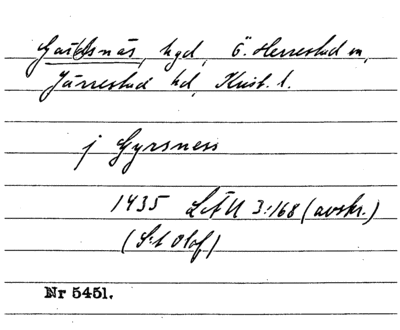 Gaislsnäs, hgd, Ö. Herrestad sn,
Järrestad hd, Krist. l.
j Gyrsness
1435 LÄU 3:168 (avskr.)
(S:t Olof)
Nr 5451.